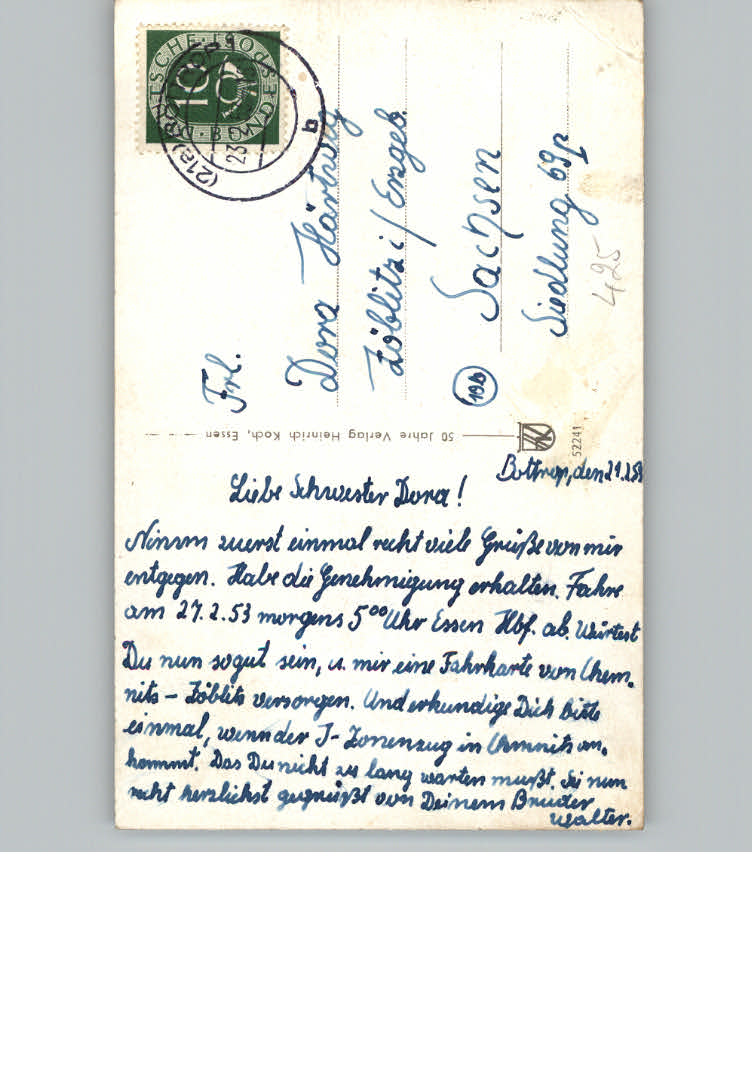 DEUTSCHE · POST
BUNDES
10
(21a)
23
b
Frl.
Dora Härtwig
Zöblitz i/Erzgeb.
(19b) Sachsen
Siedlung 69 p
425
50 Jahre Verlag Heinrich Koch, Essen
52241
Bottrop, den 21.2.53
Liebe Schwester Dora!
Nimm zuerst einmal recht viele Grüße von mir
entgegen. Habe die Genehmigung erhalten. Fahre
am 27.2.53 morgens 5⁰⁰ Uhr Essen Hbf. ab. Würtest
Du nun so gut sein, u. mir eine Fahrkarte von Chem-
nitz – Zöblitz versorgen. Und erkundige Dich bitte
einmal, wenn der J-Zonenzug in Chemnitz an-
kommt. Das Du nicht zu lang warten mußt. Sei nun
recht herzlichst gegrüßt von Deinem Bruder
Walter.